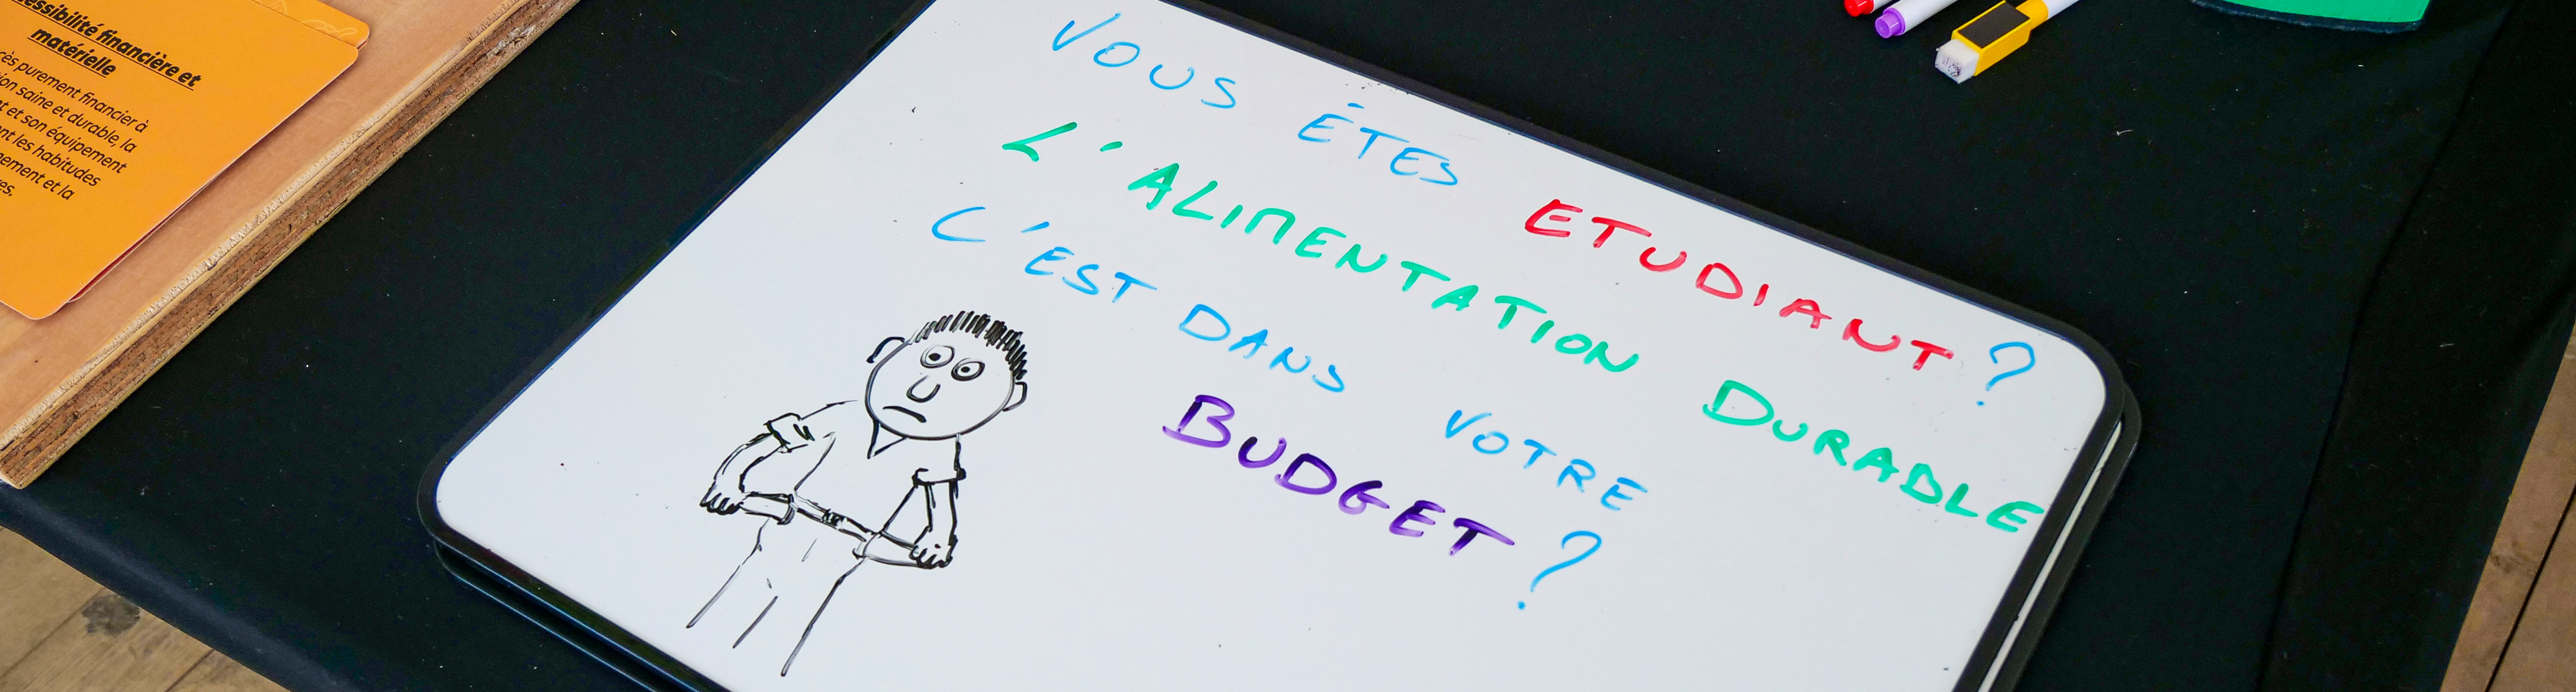 essibilité financière et
matérielle
cès purement financier à
ion saine et durable, la
t et son équipement
nt les habitudes
ement et la
es.
VOUS ÊTES ETUDIANT ?
L'ALIMENTATION DURABLE
C'EST DANS VOTRE
BUDGET ?